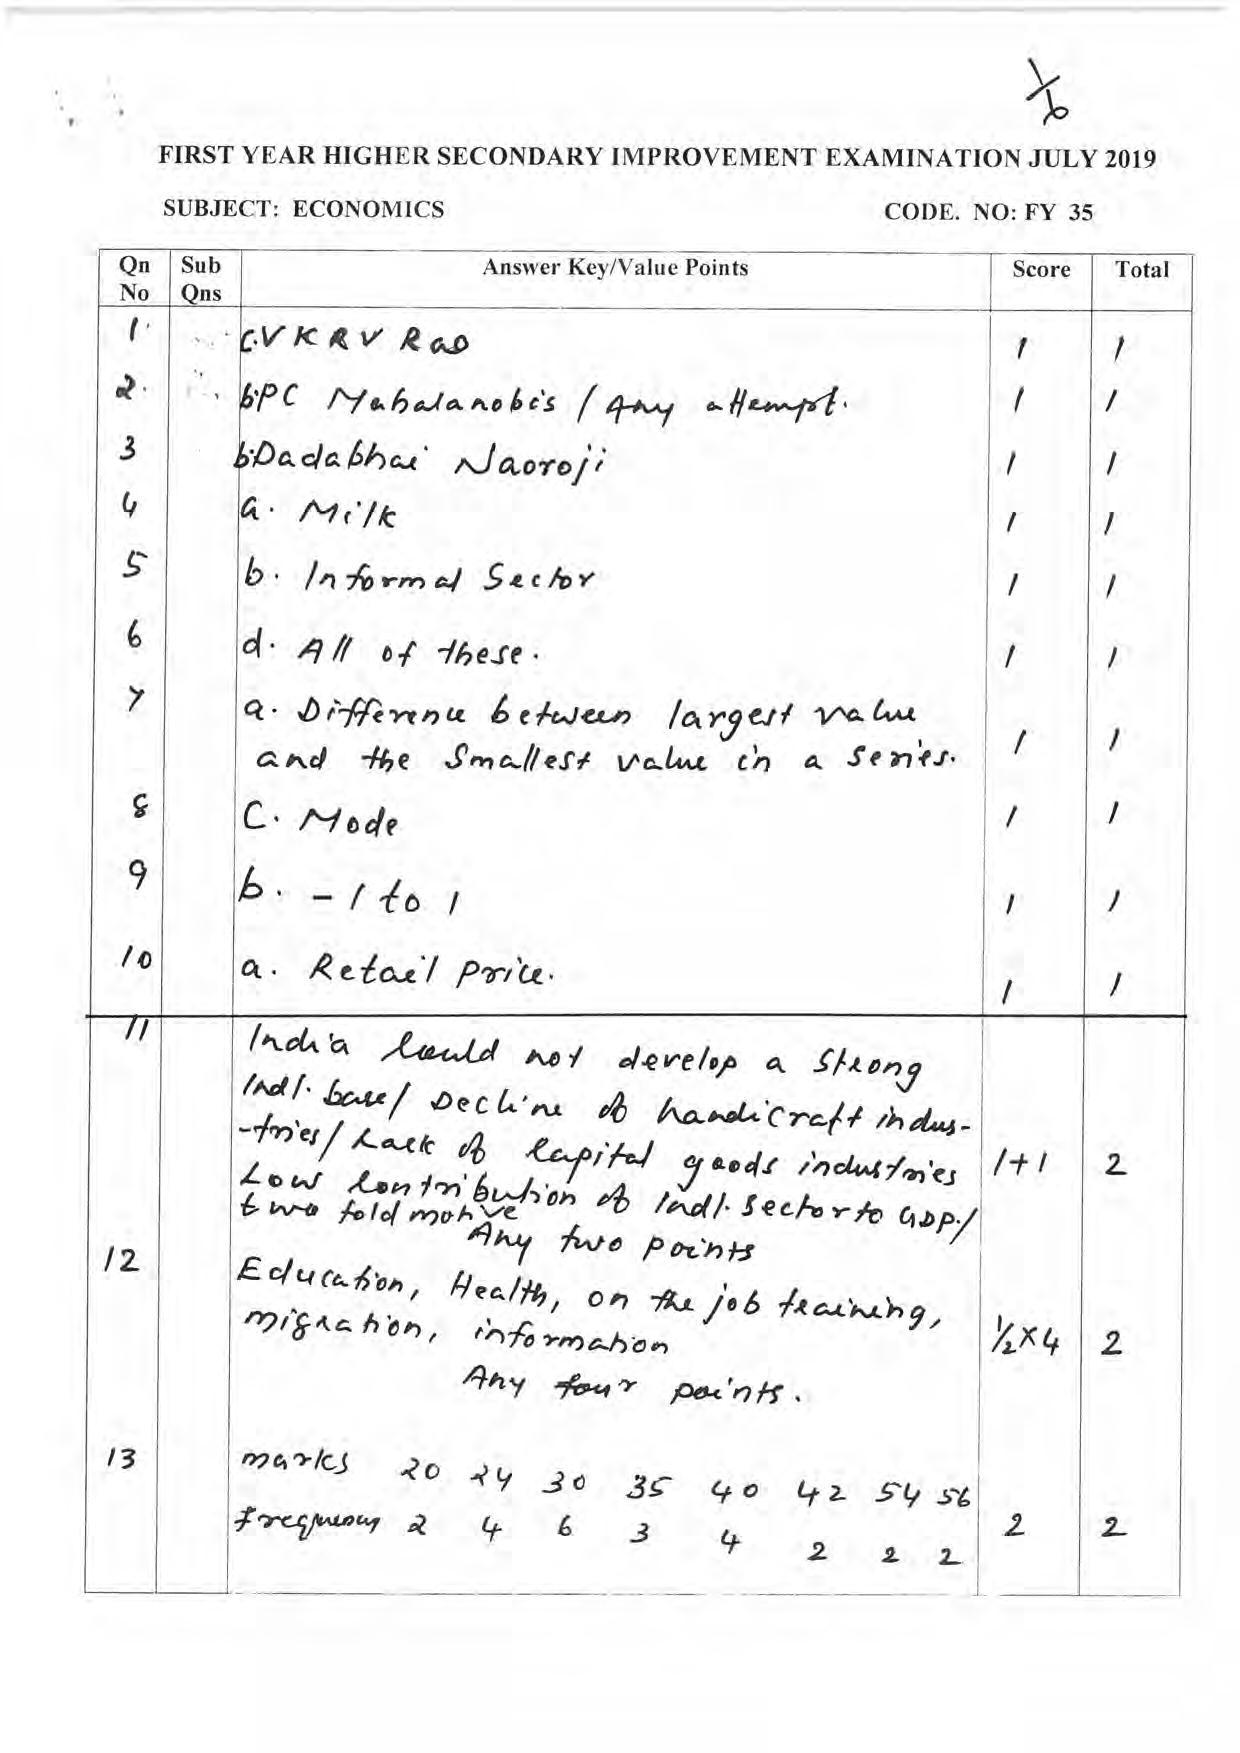 1/6
FIRST YEAR HIGHER SECONDARY IMPROVEMENT EXAMINATION JULY 2019
SUBJECT: ECONOMICS CODE. NO: FY 35
Qn No Sub Qns Answer Key/Value Points Score Total
1. C. V K R V Rao 1 1
2. b. PC Mahalanobis / Any attempt. 1 1
3 b. Dadabhai Naoroji 1 1
4 a. Milk 1 1
5 b. Informal Sector 1 1
6 d. All of these. 1 1
7 a. Difference between largest value
and the smallest value in a series. 1 1
8 C. Mode 1 1
9 b. -1 to 1 1 1
10 a. Retail Price. 1 1
11 India could not develop a strong
Indl. base/ Decline of handicraft indus-
-tries/ Lack of Capital goods industries 1+1 2
Low Contribution of Indl. Sector to GDP./
two fold motive
Any two points
12 Education, Health, on the job training,
migration, information ½×4 2
Any four points.
13 marks 20 24 30 35 40 42 54 56
frequency 2 4 6 3 4 2 2 2 2 2